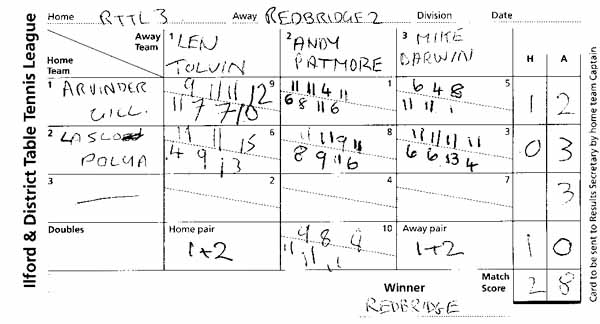 Ilford & District Table Tennis League
Home RTTL 3 Away REDBRIDGE 2 Division Date
Away Team 1 LEN TOLVIN 2 ANDY PATMORE 3 MIKE DARWIN H A
Home Team
1 ARVINDER GILL 9 1 5 1 2
9 11 11 12 11 11 4 11 6 4 8
11 7 7 10 6 8 11 6 11 11 11
2 LASLO POLYA 6 8 3 0 3
11 11 15 11 11 9 11 11 11 11 11
4 9 13 8 9 11 6 6 6 13 4
3 2 4 7 3
Doubles Home pair 1+2 10 Away pair 1+2 1 0
9 8 8
11 11 11
Winner REDBRIDGE Match Score 2 8
Card to be sent to Results Secretary by home team Captain